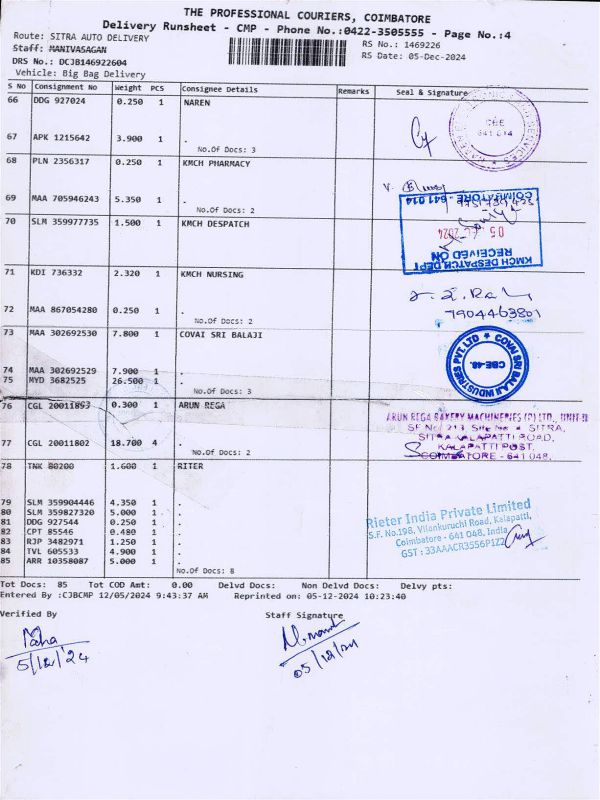 THE PROFESSIONAL COURIERS, COIMBATORE
Delivery Runsheet - CMP - Phone No.:0422-3505555 - Page No.:4
Route: SITRA AUTO DELIVERY
RS No.: 1469226
Staff: MANIVASAGAN
RS Date: 05-Dec-2024
DRS No.: DCJB146922604
Vehicle: Big Bag Delivery
S No Consignment No Weight PCS Consignee Details Remarks Seal & Signature
66 DDG 927024 0.250 1 NAREN
CBE
641 014
67 APK 1215642 3.900 1 .
No.Of Docs: 3
68 PLN 2356317 0.250 1 KMCH PHARMACY
69 MAA 705946243 5.350 1 .
No.Of Docs: 2
70 SLM 359977735 1.500 1 KMCH DESPATCH
KMCH DESPATCH DEPT
RECEIVED ON
05 DEC 2024
COIMBATORE - 641 014
71 KDI 736332 2.320 1 KMCH NURSING
7904463801
72 MAA 867054280 0.250 1 .
No.Of Docs: 2
73 MAA 302692530 7.800 1 COVAI SRI BALAJI
COVAI SRI BALAJI INDUSTRIES PVT. LTD
CBE-48.
74 MAA 302692529 7.900 1 .
75 MYD 3682525 26.500 1 .
No.Of Docs: 3
76 CGL 20011893 0.300 1 ARUN REGA
ARUN REGA BAKERY MACHINERIES (P) LTD., UNIT-II
SF No. 213, Site No 4 SITRA,
SITRA KALAPATTI ROAD,
KALAPATTI POST,
COIMBATORE - 641 048.
77 CGL 20011802 18.700 4 .
No.Of Docs: 2
78 TNK 80200 1.600 1 RITER
79 SLM 359904446 4.350 1 .
80 SLM 359827320 5.000 1 .
81 DDG 927544 0.250 1 .
82 CPT 85546 0.480 1 .
83 RJP 3482971 1.250 1 .
84 TVL 605533 4.900 1 .
85 ARR 10358087 5.000 1 .
No.Of Docs: 8
Rieter India Private Limited
S.F. No.198, Vilankuruchi Road, Kalapatti,
Coimbatore - 641 048, India
GST : 33AAACR3556P1Z2
Tot Docs: 85 Tot COD Amt: 0.00 Delvd Docs: Non Delvd Docs: Delvy pts:
Entered By :CJBCMP 12/05/2024 9:43:37 AM Reprinted on: 05-12-2024 10:23:40
Verified By
Staff Signature
5/12/24
05/12/24